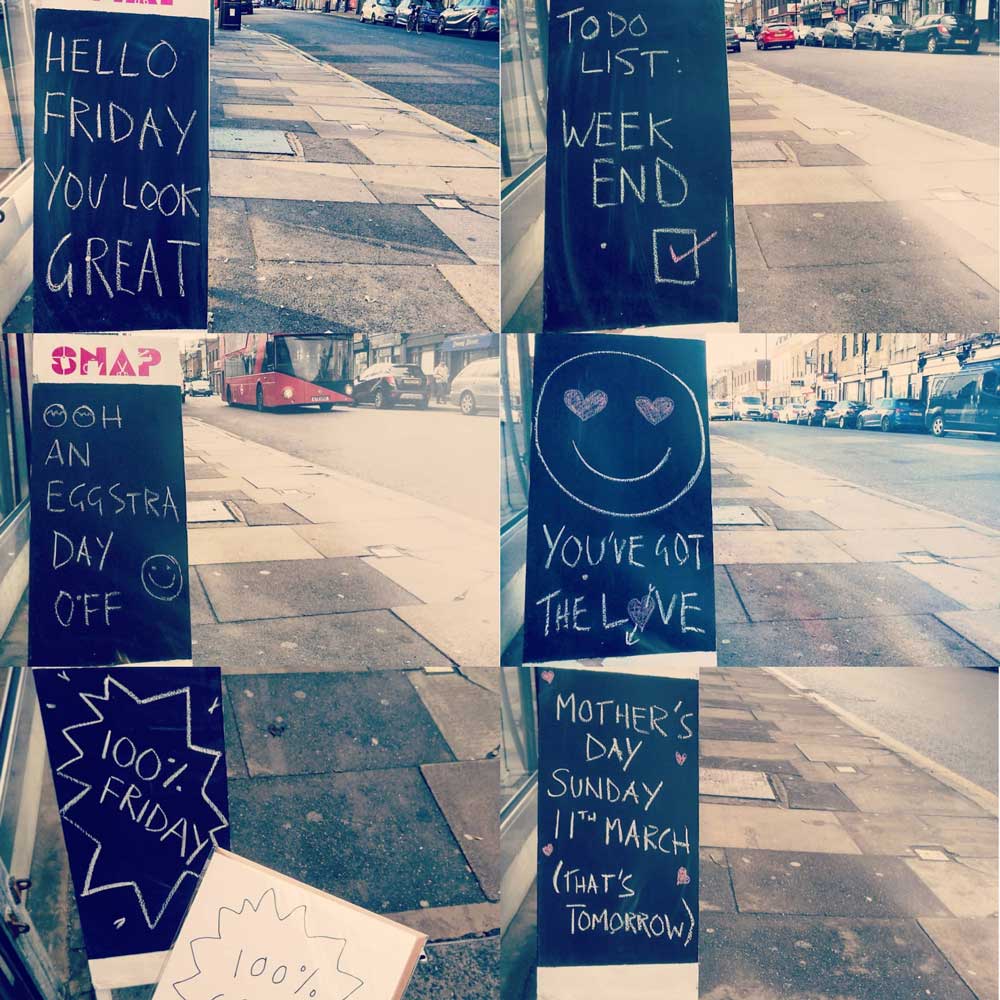 HELLO
FRIDAY
YOU LOOK
GREAT
TO DO
LIST:
WEEK
END
SNAP
OOH
AN
EGGSTRA
DAY
OFF
YOU'VE GOT
THE LOVE
100%
FRIDAY
100%
MOTHER'S
DAY
SUNDAY
11TH MARCH
(THAT'S
TOMORROW)